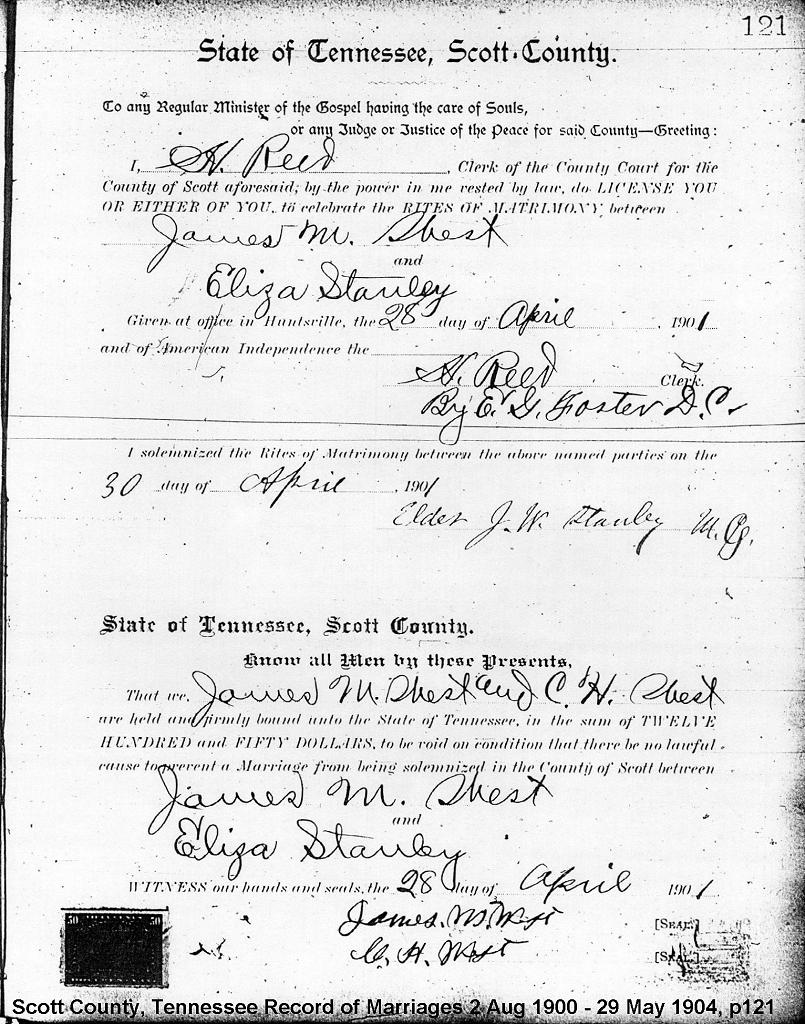 121
State of Tennessee, Scott County.
To any Regular Minister of the Gospel having the care of Souls,
or any Judge or Justice of the Peace for said County—Greeting:
I, H. Reed, Clerk of the County Court for the
County of Scott aforesaid; by the power in me vested by law, do LICENSE YOU
OR EITHER OF YOU, to celebrate the RITES OF MATRIMONY between
James M. West
and
Eliza Stanley
Given at office in Huntsville, the 28 day of April, 1901
and of American Independence the
H. Reed Clerk.
By E. G. Foster D. C.
I solemnized the Rites of Matrimony between the above named parties on the
30 day of April, 1901
Elder J. W. Stanley M. G.
State of Tennessee, Scott County.
Know all Men by these Presents,
That we, James M. West and C. H. West
are held and firmly bound unto the State of Tennessee, in the sum of TWELVE
HUNDRED and FIFTY DOLLARS, to be void on condition that there be no lawful
cause to prevent a Marriage from being solemnized in the County of Scott between
James M. West
and
Eliza Stanley
WITNESS our hands and seals, the 28 day of April 1901
James. M. West [SEAL]
C. H. West [SEAL]
50 50
Scott County, Tennessee Record of Marriages 2 Aug 1900 - 29 May 1904, p121